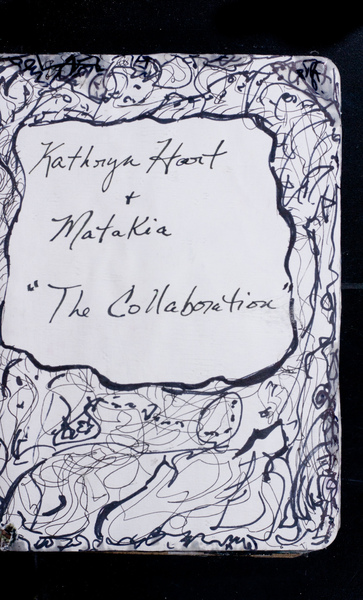 Kathryn Hart
+
Matakia
"The Collaboration"